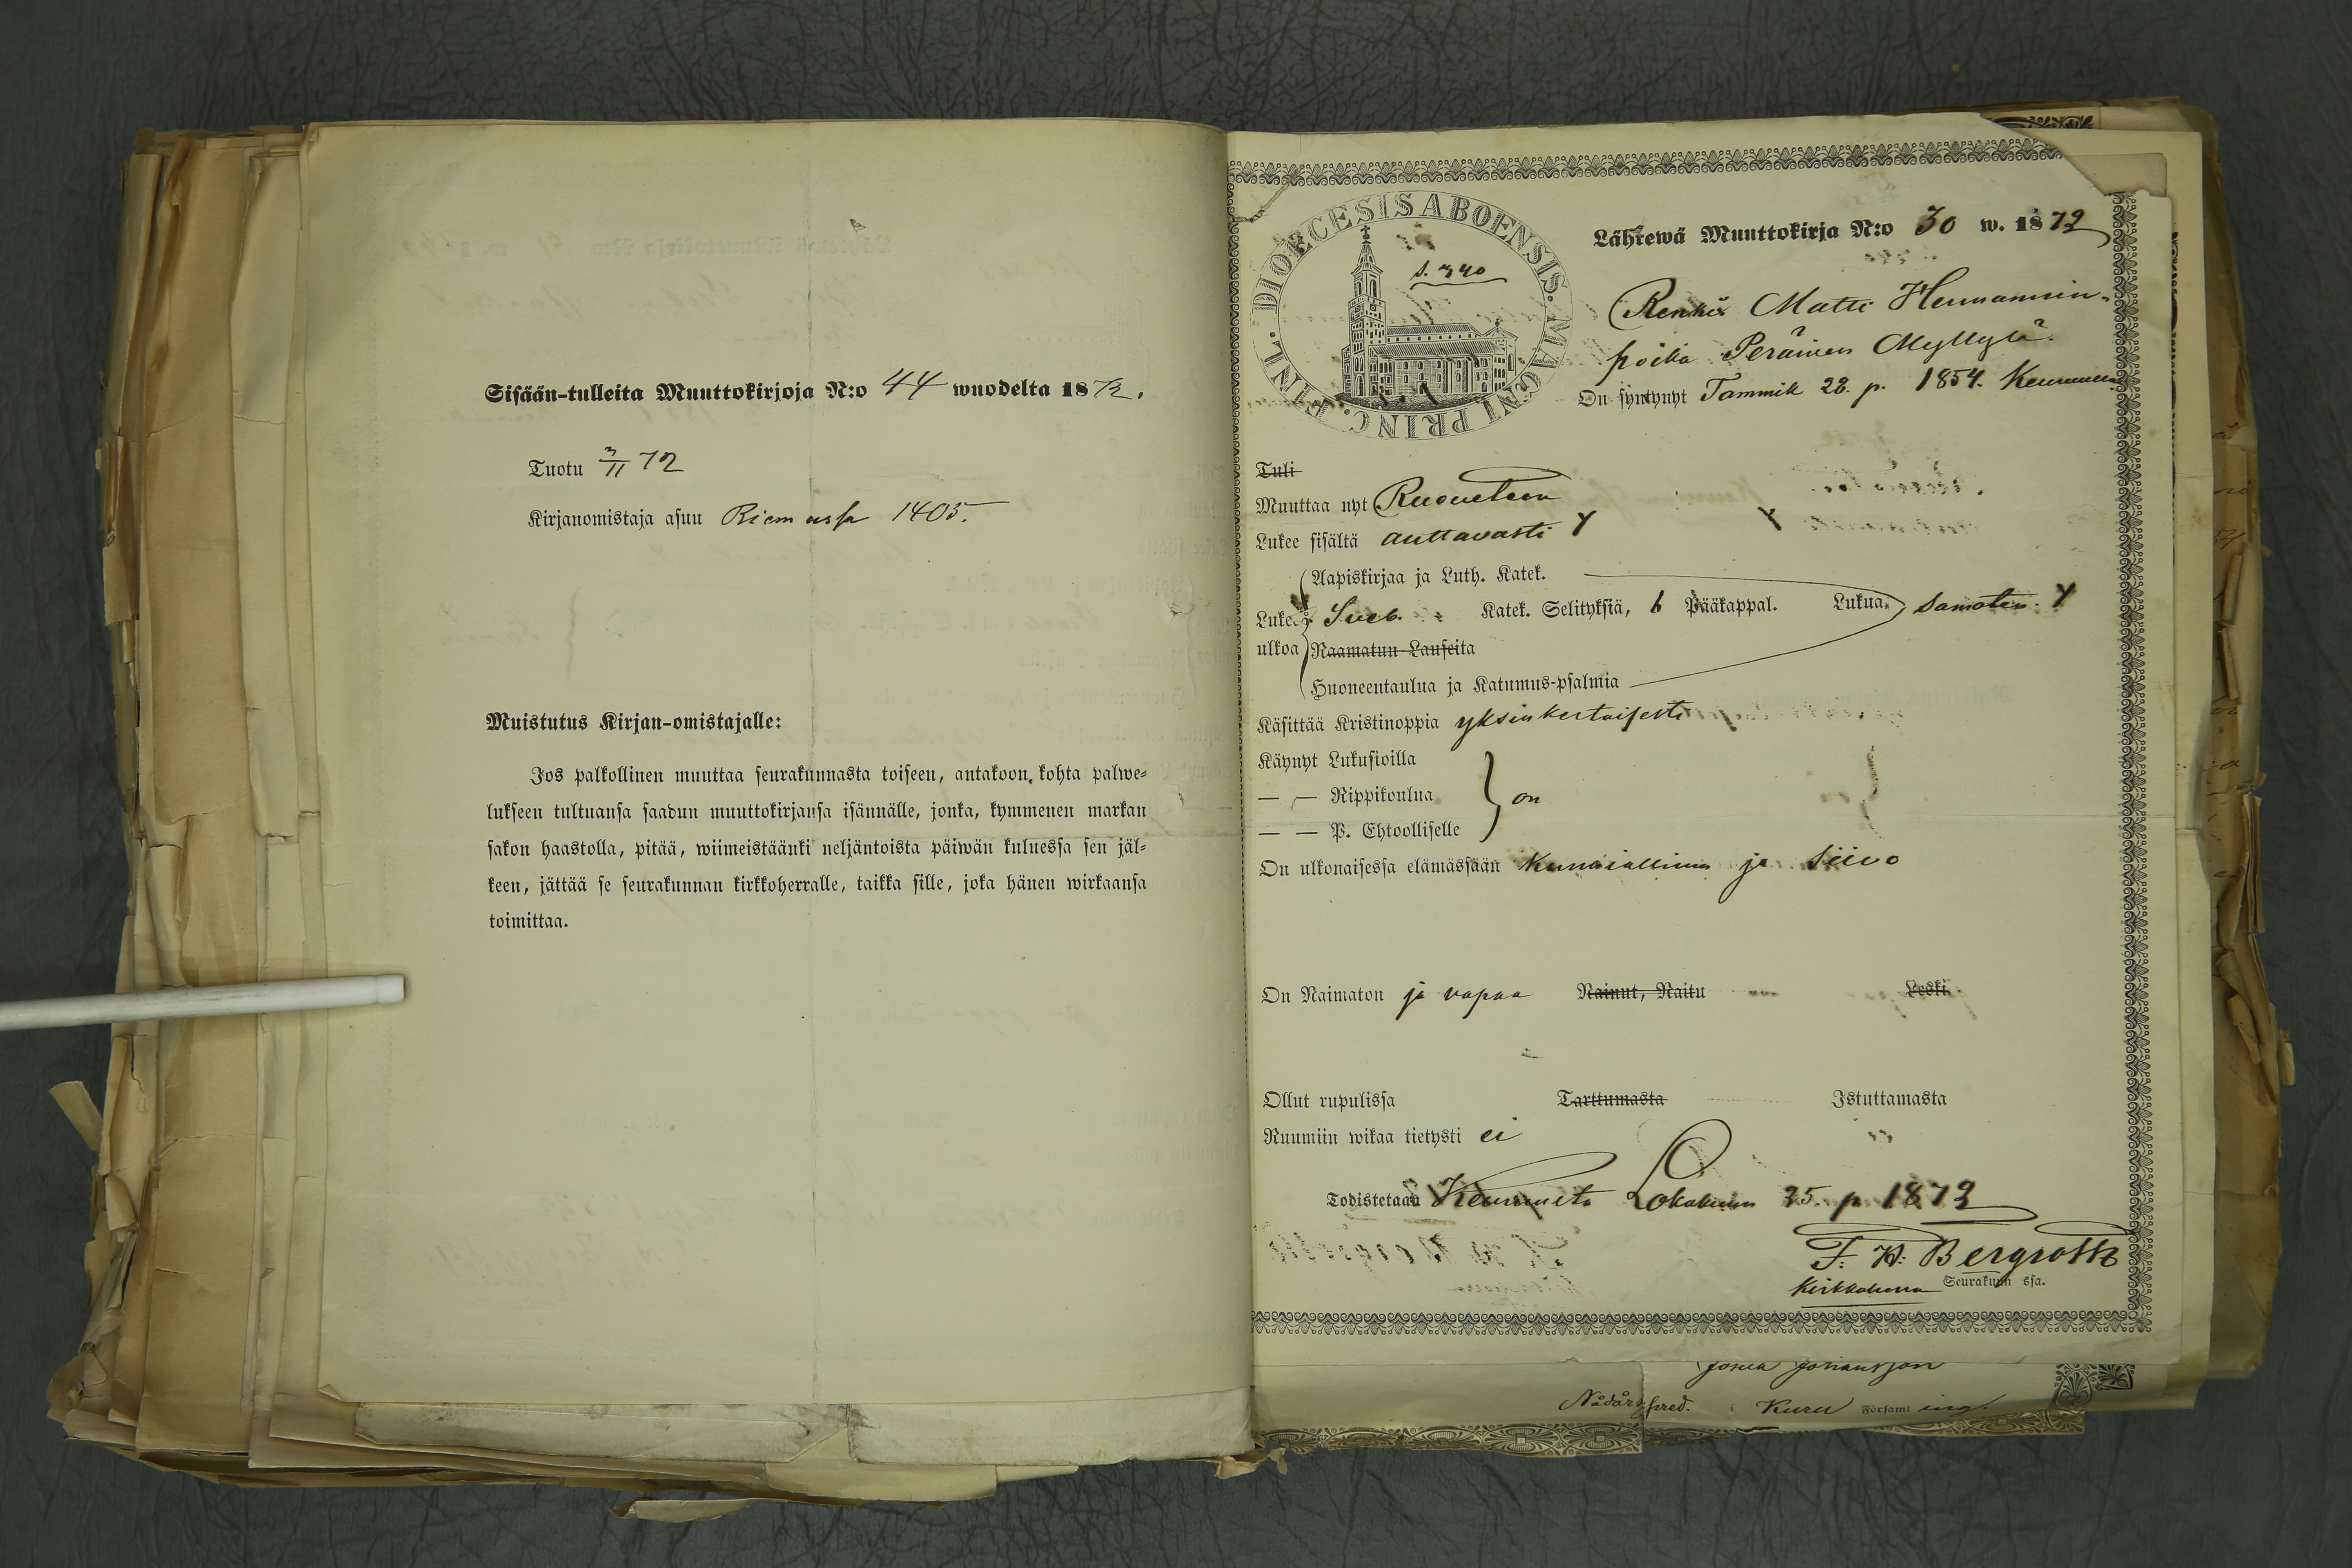 Sisään-tulleita Muuttokirjoja N:o 44 wuodelta 1872.
Tuotu 3/11 72
Kirjanomistaja asuu Riemussa 1405.
Muistutus Kirjan-omistajalle:
Jos palkollinen muuttaa seurakunnasta toiseen, antakoon kohta palwe-
lukseen tultuansa saadun muuttokirjansa isännälle, jonka, kymmenen markan
sakon haastolla, pitää, wiimeistäänki neljäntoista päiwän kuluessa sen jäl-
keen, jättää se seurakunnan kirkkoherralle, taikka sille, joka hänen wirkaansa
toimittaa.
DIOECESIS ABOENSIS. MAGNI PRINC. FINL.
s. 340
Lähtewä Muuttokirja N:o 30 w. 1872
Renki Matti Hermannin-
poika Peräinen Myllylä.
On syntynyt Tammik 28. p. 1854. Keuruulla
Tuli
Muuttaa nyt Ruoveteen
Lukee sisältä auttavasti
Aapiskirjaa ja Luth. Katek.
Lukee ulkoa Sveb. Katek. Selityksiä, 6 Pääkappal. Lukua, samaten.
Raamatun Lauseita
Huoneentaulua ja Katumus-psalmia
Käsittää Kristinoppia yksinkertaisesti
Käynyt Lukusioilla
— — Rippikoulua } on
— — P. Ehtoolliselle
On ulkonaisessa elämässään kunniallinen ja siivo
On Naimaton ja vapaa Nainut, Naitu Leski
Ollut rupulissa Tarttumasta Istuttamasta
Ruumiin wikaa tietysti ei
Todistetaan Keuruulta Lokakuun 25. p. 1872
F. W. Bergroth
Kirkkoherra Seurakunn ssa.
Johansson
Nådårspred. i Kuru Församl ing.